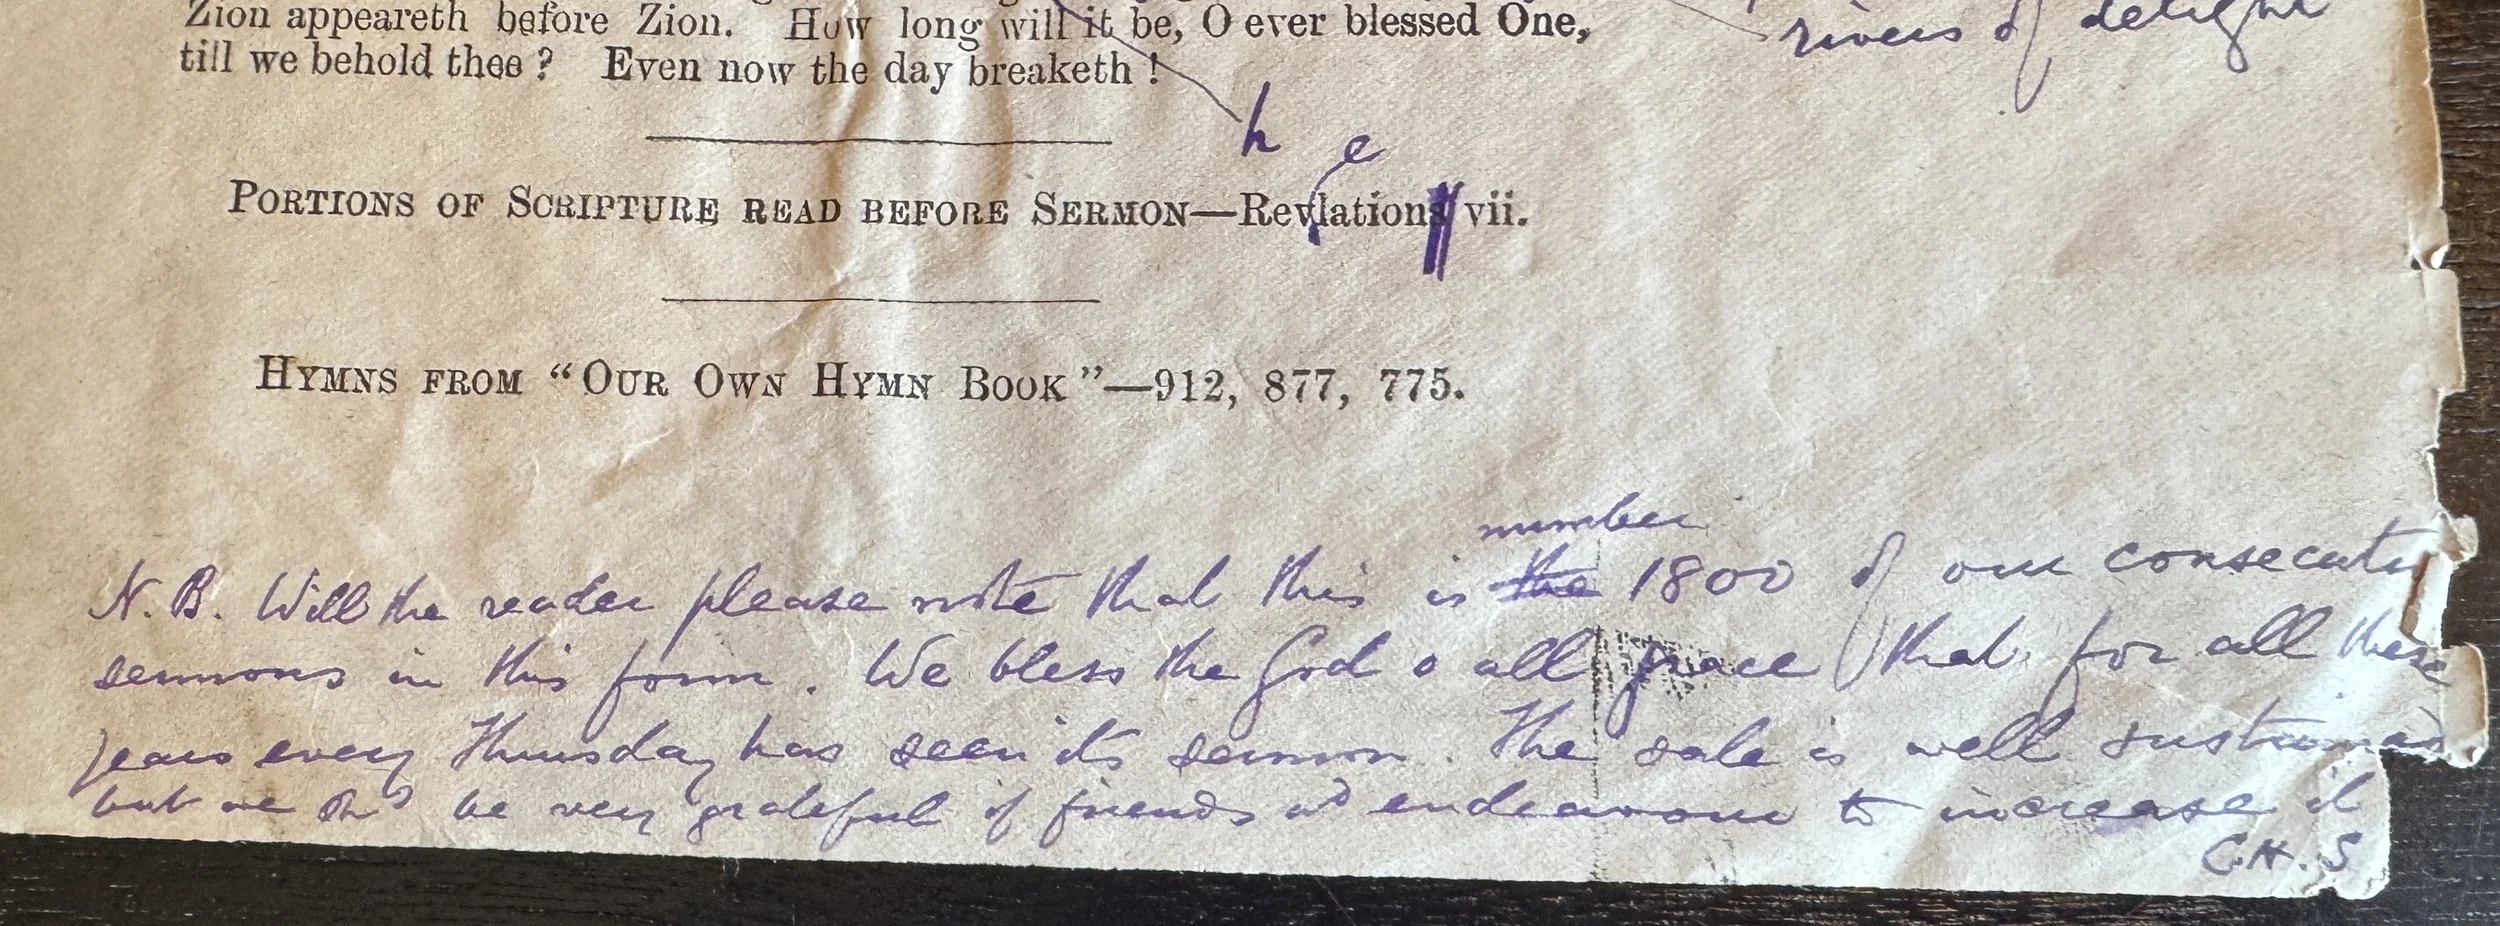 Zion appeareth before Zion. How long will it be, O ever blessed One,
rivers of delight
till we behold thee? Even now the day breaketh!
h
e
PORTIONS OF SCRIPTURE READ BEFORE SERMON—Revlations vii.
HYMNS FROM "OUR OWN HYMN BOOK"—912, 877, 775.
number
N. B. Will the reader please note that this is the 1800 of our consecutiv
sermons in this form. We bless the God o all grace that for all these
years every Thursday has seen its sermon. The sale is well sustained
but we shd be very grateful if friends wd endeavour to increase it
C. H. S